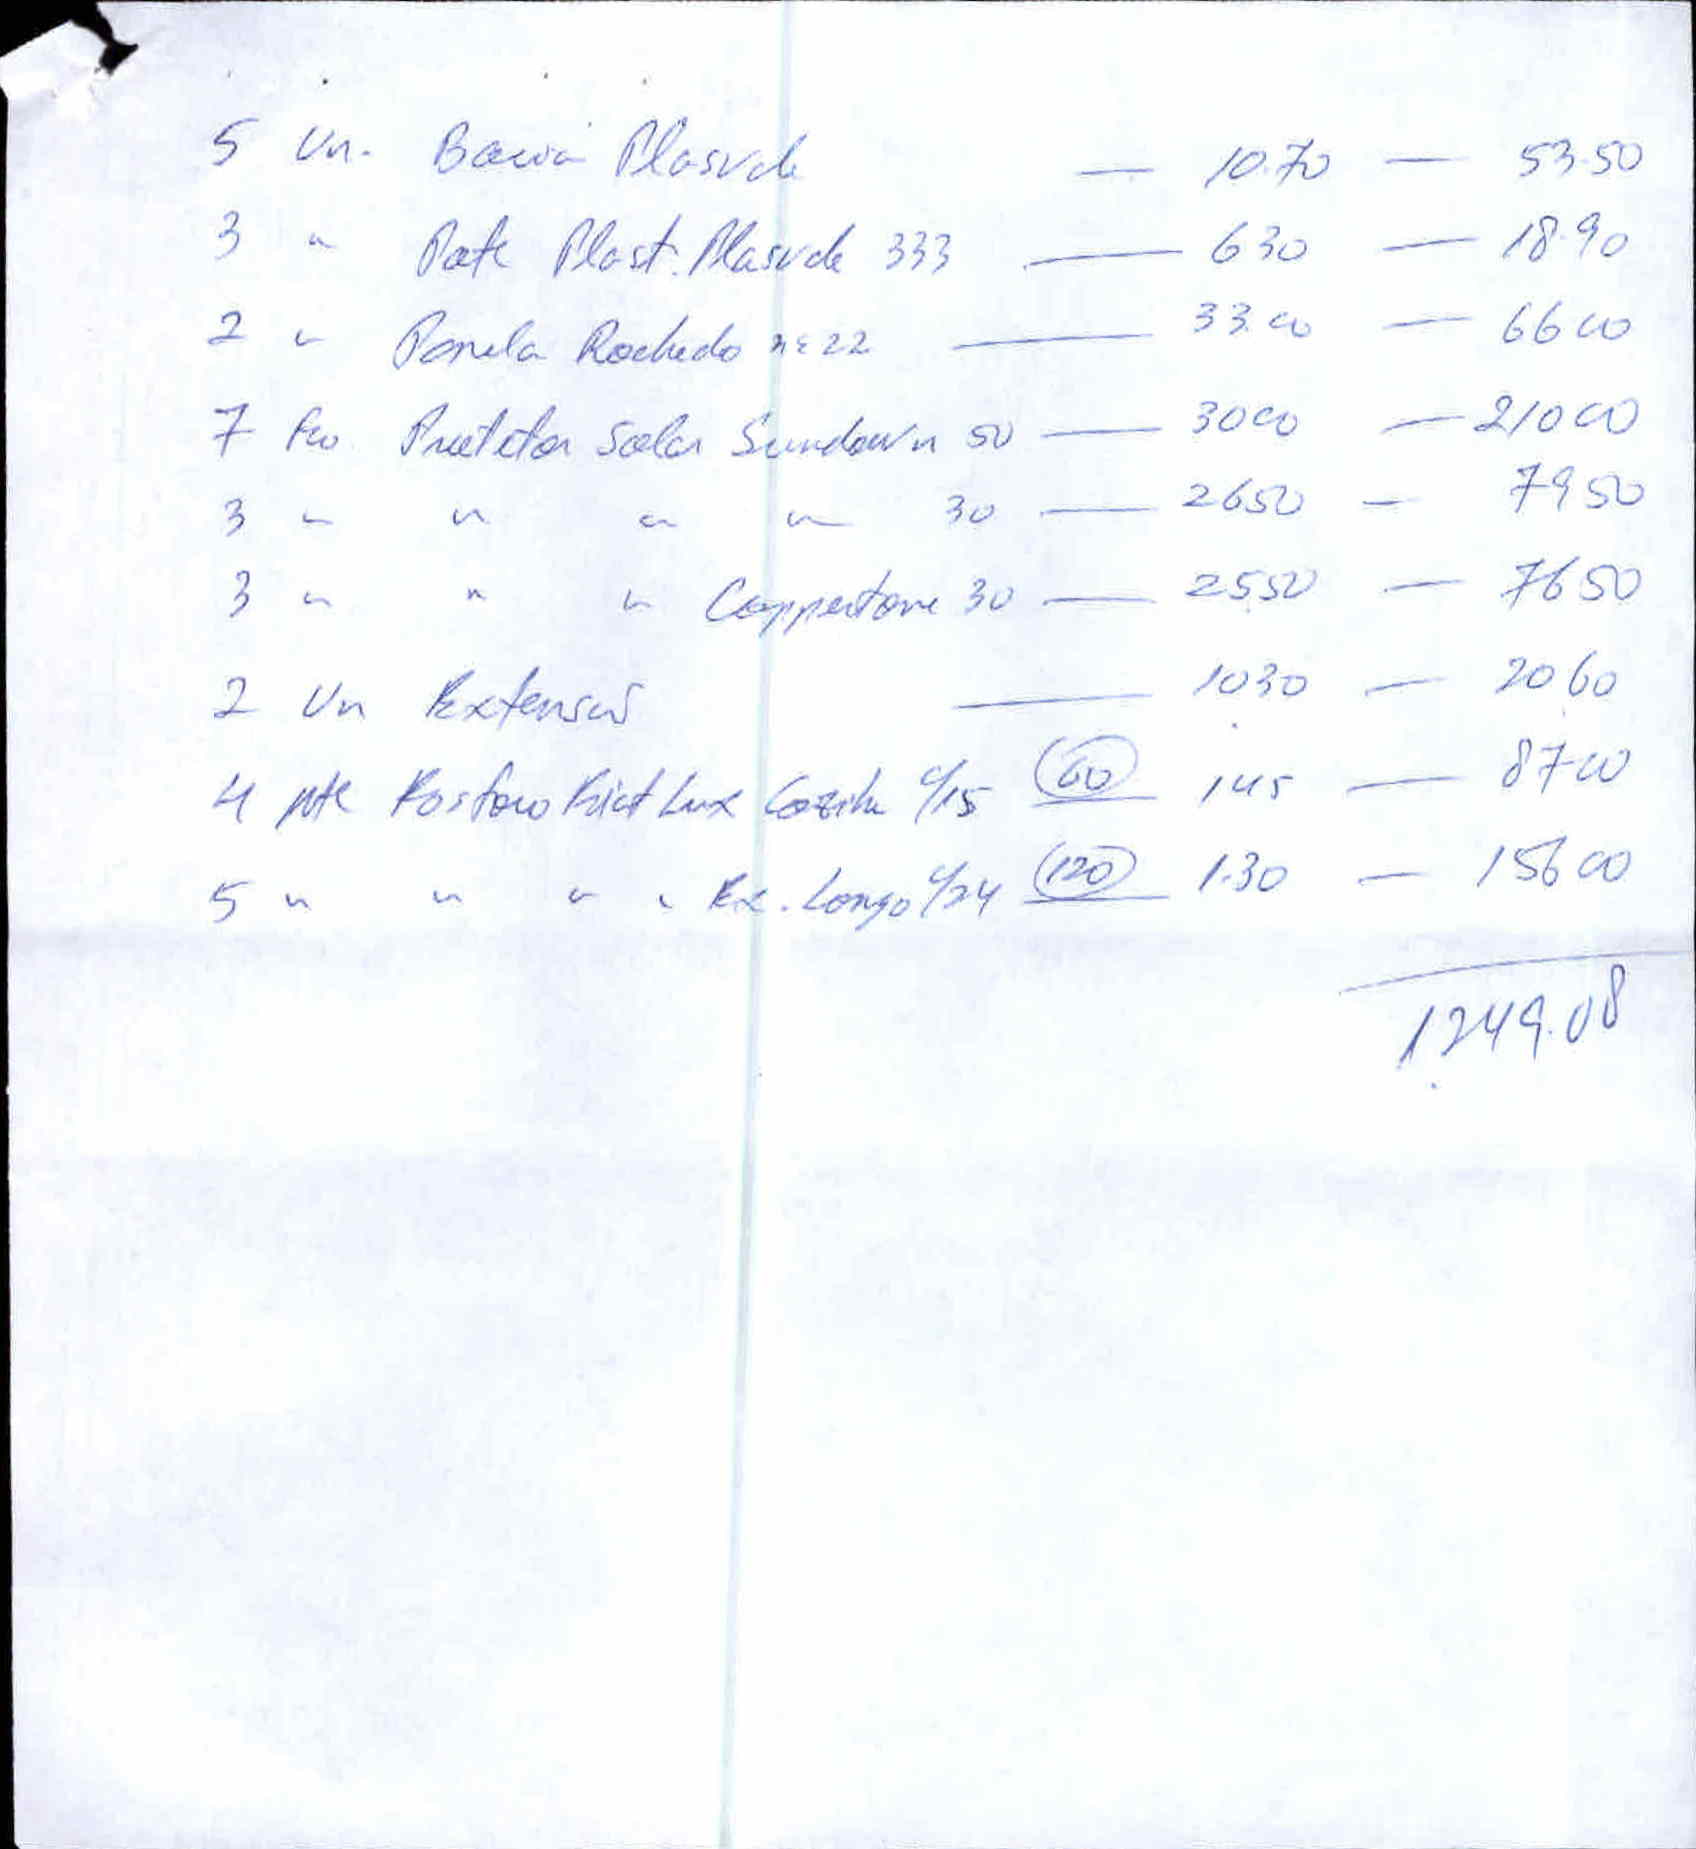 5 Un. Bacia Plasvale — 10.70 — 53.50
3 " Pote Plast. Plasvale 333 — 630 — 18.90
2 " Panela Rochedo nº 22 — 33.00 — 6600
7 Protetor Solar Sundown 50 — 3000 — 21000
3 " " " " 30 — 2650 — 7950
3 " " " Coppertone 30 — 2550 — 7650
2 Un Extensão — 1030 — 2060
4 pte Fosforo Fiat Lux Cozinha c/15 (60) 145 — 8700
5 " " " " Ex. Longo c/24 (120) 1.30 — 15600
1249.08